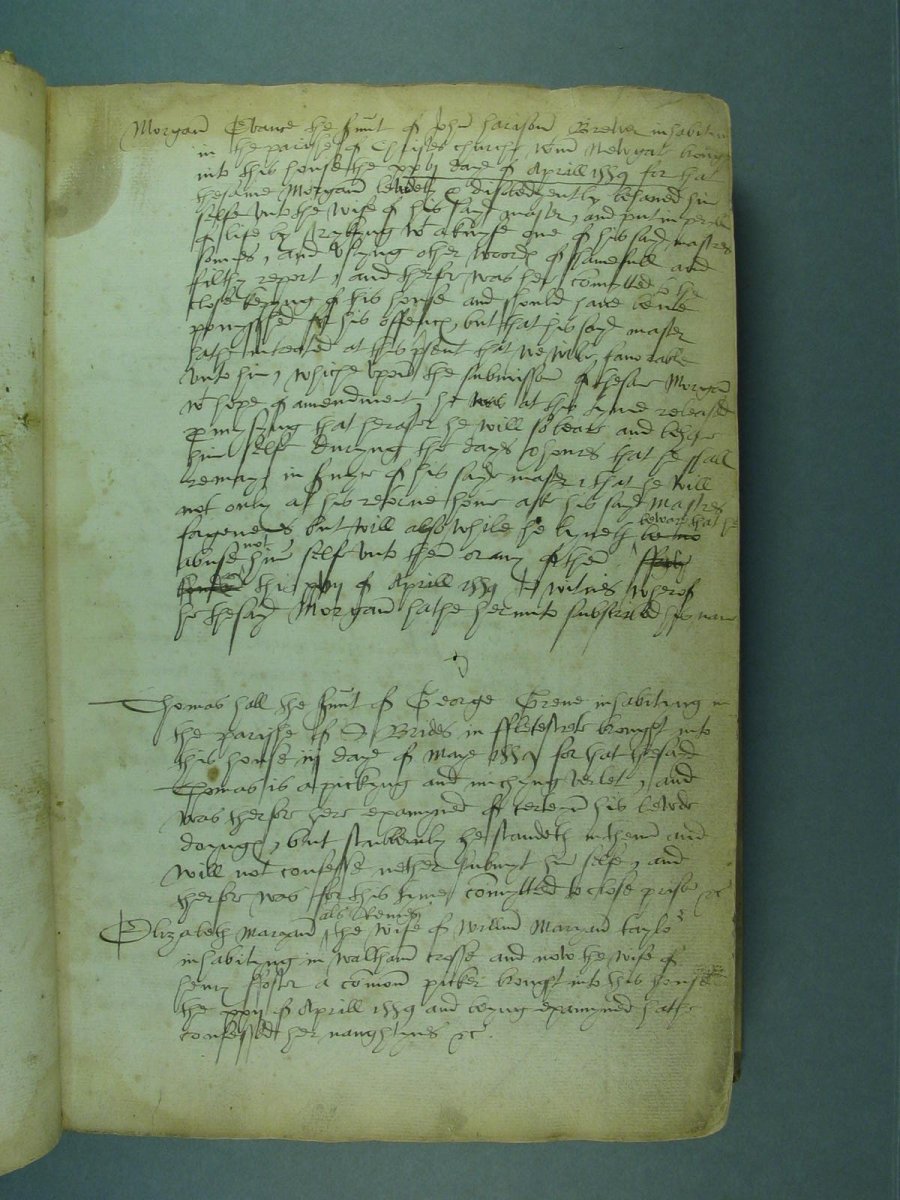 Morgan Evance the sunt of John harison Brewer inhabiting
in the parishe of Christes church wtin Newgat brought
into this house the xxvj daye of Aprill 1559 for that
thesame Morgan lewdely & disobediently behaved him
selfe unto the wife of his said master, and put in perill
of life by stryking wt a knyfe one of his said mastres
sonnes, and usyng other woords of shamefull and
filthy report, and therfor was here comitted to the
close keping of this house and should have bene
ponysshed for his offence, but that his sayd master
hathe intreated at this psent that we wilbe favorable
unto him, whiche upon the submission of thesame Morgan
wt hope of amendment he was at this tyme released
pmysing that herafter he will so leade and behave
him self during the dayes & houres that he shall
remayn in service of his sayd master, that he will
not only at his retorne home ask his sayd mastres
forgevenes but will also while he lyveth beware that he
abuse not him self unto them or any of them
this xxvij of Aprill 1559 In witnes wherof
he thesayd Morgan hathe hereunto subscribed his name
Thomas hall the sunt of George Grene inhabiting in
the parishe of S Brides in ffletestrete brought into
this house iij daye of Maye 1559 for that thesaid
Thomas is a pickyng and michyng verlet, and
was therfore here examyned of certeyn his lewde
doynges, but stubbernly he standeth in them and
will not confesse nether submyt him selfe, and
therfor was for this tyme comitted to close prison &c
als Dennys
Elizabeth Maryan the wife of Willm Maryan taylor
inhabiting in Waltham crosse and now the wife of
henry ffoster a comon picker brought into this house
the xxvij of Aprill 1559 and beyng examyned hathe
confessed her naughtynes &c.